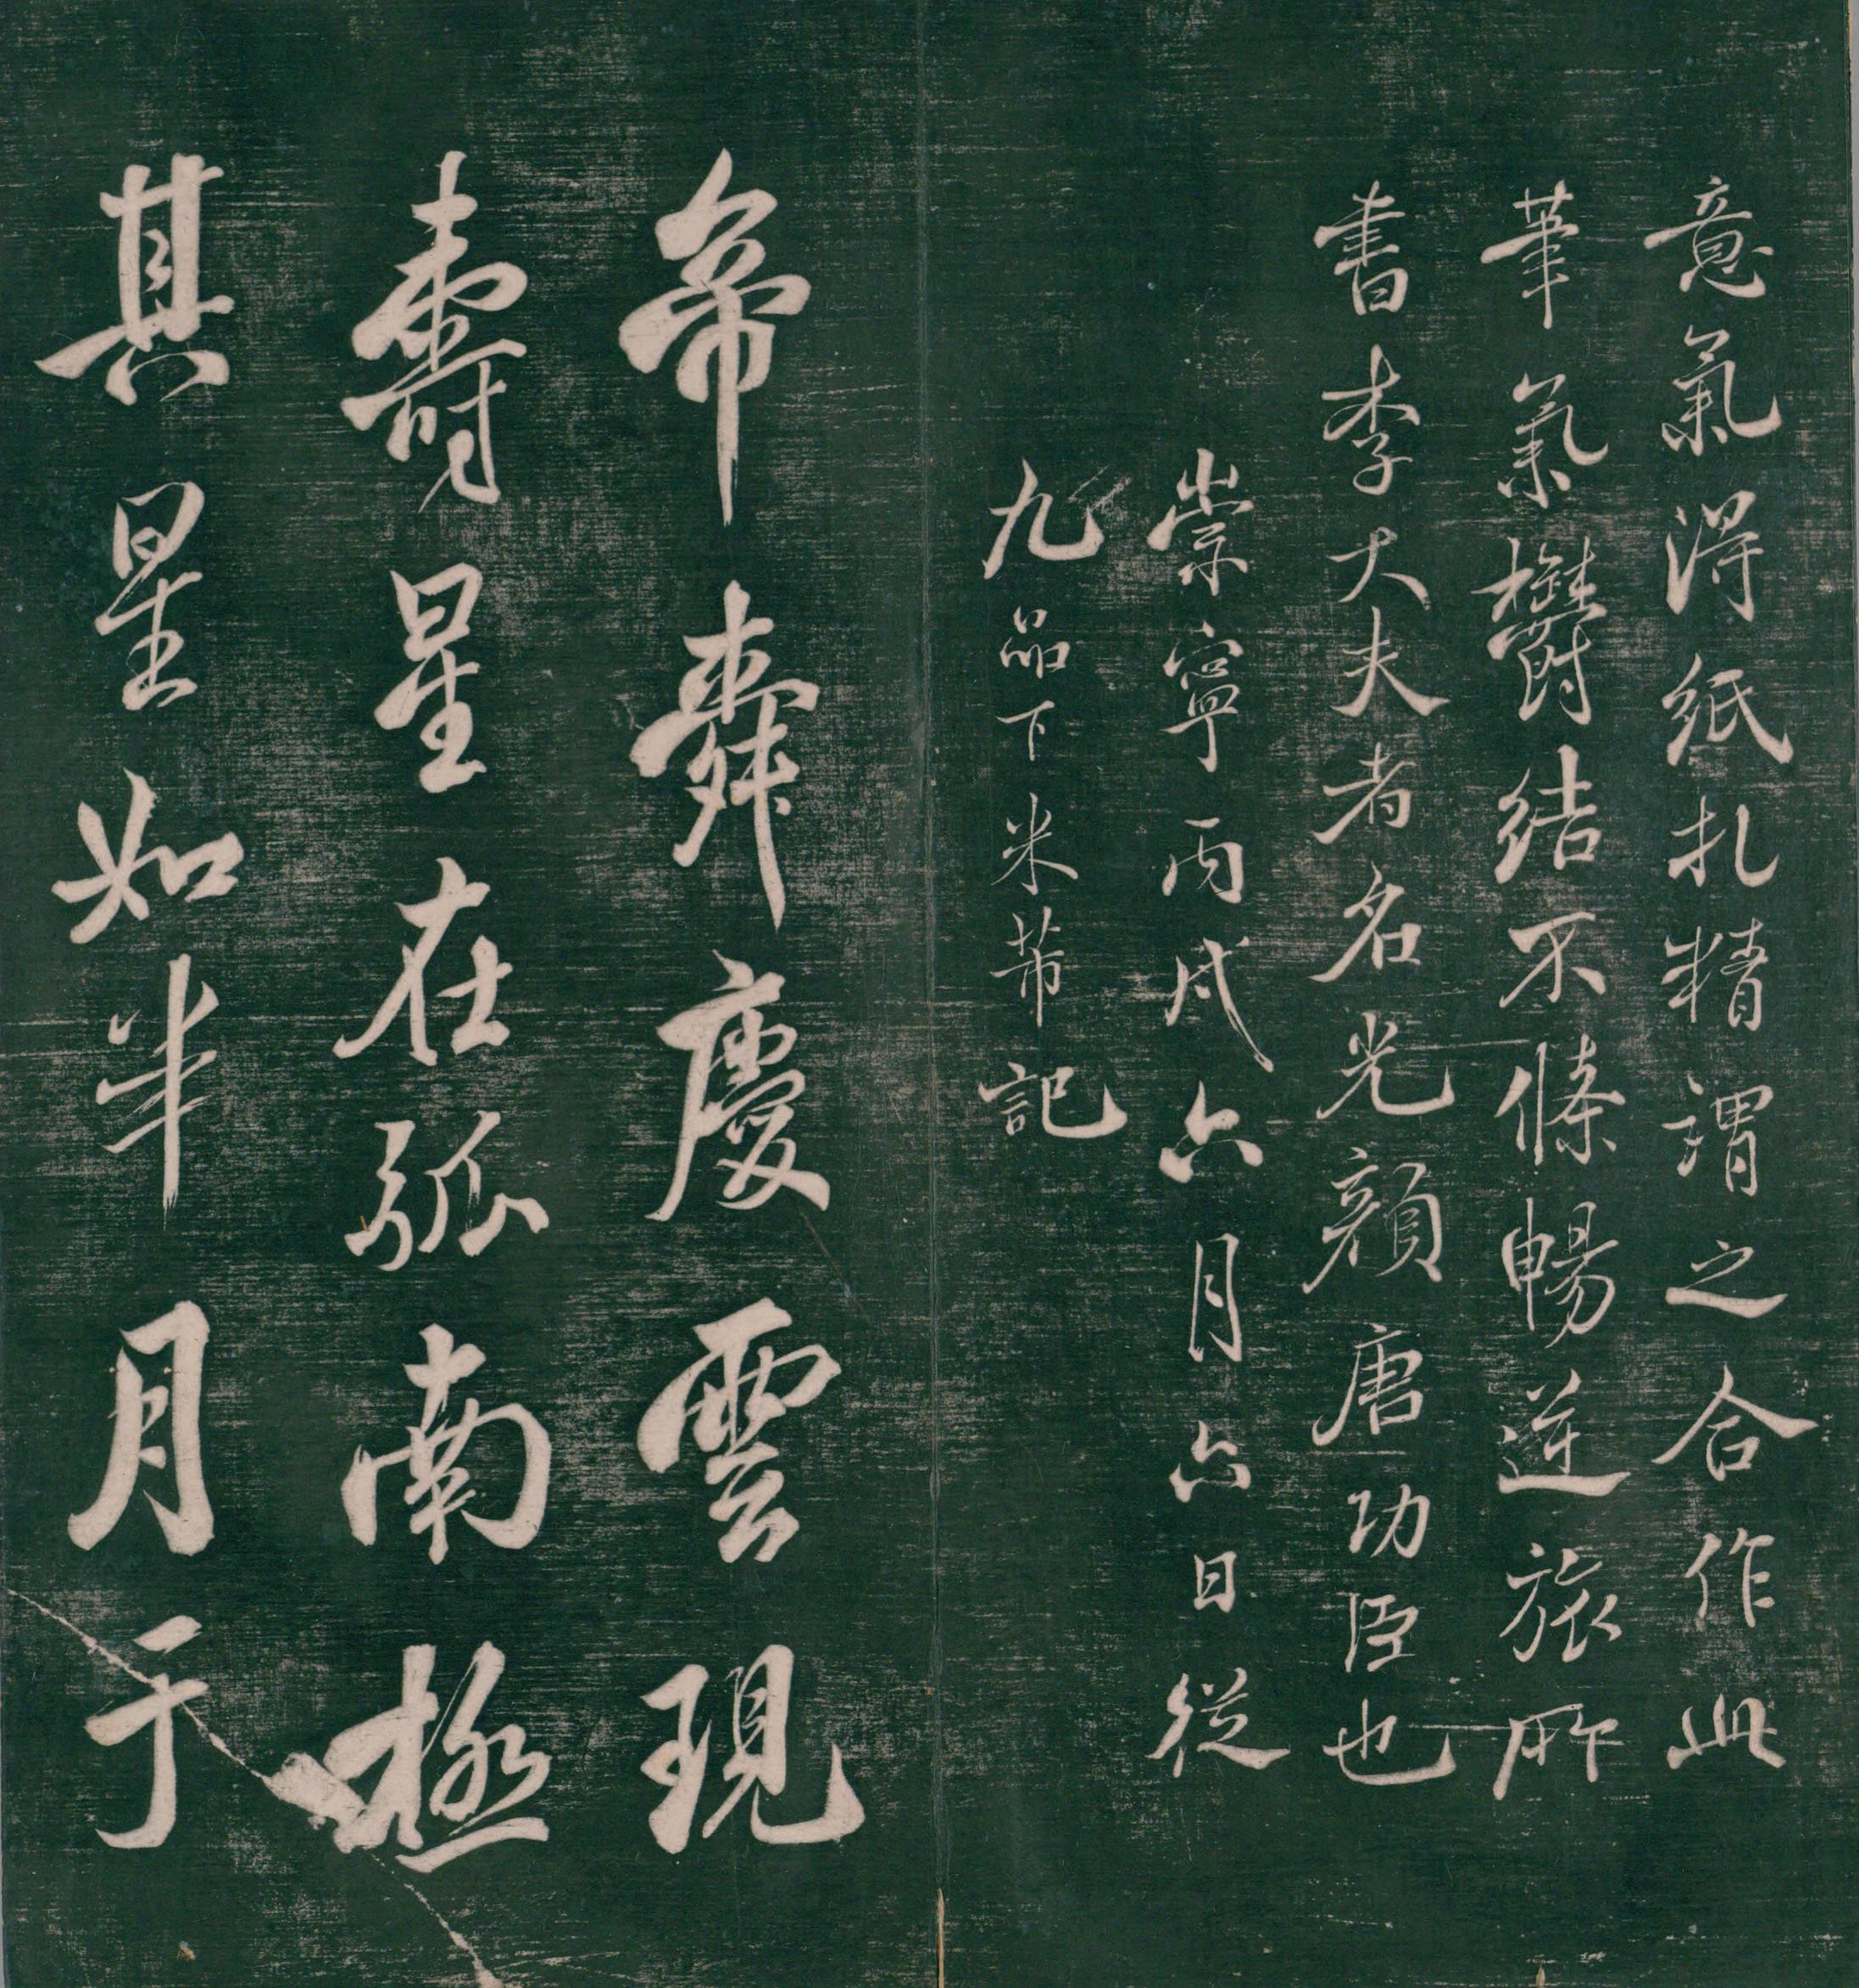 意氣得紙札精謂之合作此
筆氣欝結不條暢逆旅所
書李大夫者名光顏唐功臣也
崇寧丙戌六月六日從
九品下米芾記
帝舜慶雲現
壽星在弧南極
其星如半月于